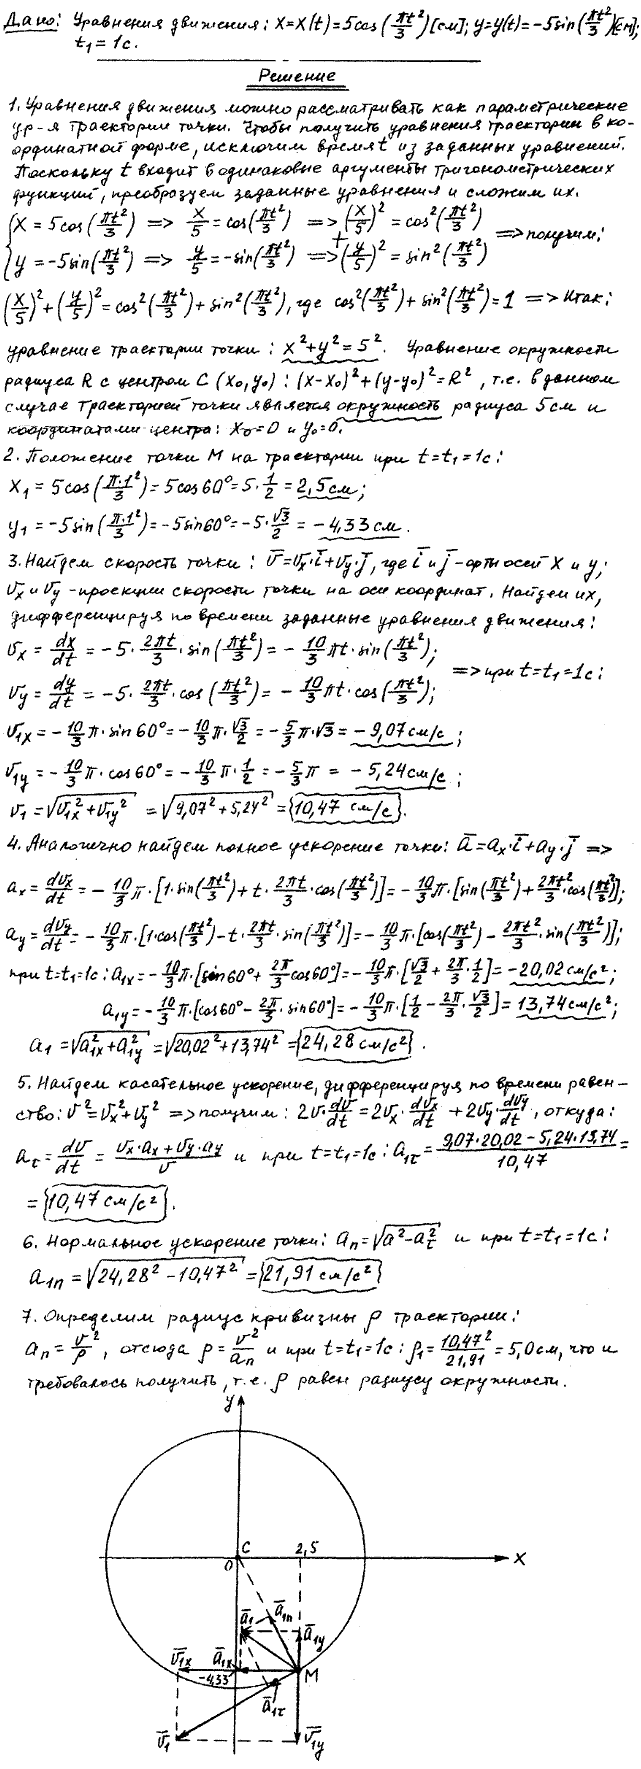 Дано: Уравнения движения: x=x(t)=5cos(πt²/3)[см]; y=y(t)=-5sin(πt²/3)[см];
t₁=1с.
Решение
1. Уравнения движения можно рассматривать как параметрические
ур-я траектории точки. Чтобы получить уравнения траектории в ко-
ординатной форме, исключим время t из заданных уравнений.
Поскольку t входит в одинаковые аргументы тригонометрических
функций, преобразуем заданные уравнения и сложим их.
{x=5cos(πt²/3) => x/5=cos(πt²/3) => (x/5)²=cos²(πt²/3)
+ => получим:
{y=-5sin(πt²/3) => y/5=-sin(πt²/3) => (y/5)²=sin²(πt²/3)
(x/5)²+(y/5)²=cos²(πt²/3)+sin²(πt²/3), где cos²(πt²/3)+sin²(πt²/3)=1 => Итак:
уравнение траектории точки: x²+y²=5². Уравнение окружности
радиуса R с центром C (x₀,y₀): (x-x₀)²+(y-y₀)²=R², т.е. в данном
случае траекторией точки является окружность радиуса 5см и
координатами центра: x₀=0 и y₀=0.
2. Положение точки M на траектории при t=t₁=1с:
x₁=5cos(π·1²/3)=5cos60°=5·1/2=2,5см;
y₁=-5sin(π·1²/3)=-5sin60°=-5·√3/2=-4,33см.
3. Найдем скорость точки: v̄=vx·ī+vy·j̄, где ī и j̄-орты осей x и y;
vx и vy-проекции скорости точки на оси координат. Найдем их,
дифференцируя по времени заданные уравнения движения:
vx=dx/dt=-5·2πt/3·sin(πt²/3)=-10/3πt·sin(πt²/3);
=> при t=t₁=1с:
vy=dy/dt=-5·2πt/3·cos(πt²/3)=-10/3πt·cos(πt²/3);
v₁x=-10/3π·sin60°=-10/3π·√3/2=-5/3π·√3=-9,07см/с;
v₁y=-10/3π·cos60°=-10/3π·1/2=-5/3π=-5,24см/с;
v₁=√(v₁x²+v₁y²)=√(9,07²+5,24²)={10,47 см/с}.
4. Аналогично найдем полное ускорение точки: ā=ax·ī+ay·j̄ =>
ax=dvx/dt=-10/3π·[1·sin(πt²/3)+t·2πt/3·cos(πt²/3)]=-10/3π·[sin(πt²/3)+2πt²/3·cos(πt²/3)];
ay=dvy/dt=-10/3π·[1·cos(πt²/3)-t·2πt/3·sin(πt²/3)]=-10/3π·[cos(πt²/3)-2πt²/3·sin(πt²/3)];
при t=t₁=1с: a₁x=-10/3π·[sin60°+2π/3cos60°]=-10/3π·[√3/2+2π/3·1/2]=-20,02см/с²;
a₁y=-10/3π·[cos60°-2π/3·sin60°]=-10/3π·[1/2-2π/3·√3/2]=13,74см/с²;
a₁=√(a₁x²+a₁y²)=√(20,02²+13,74²)={24,28 см/с²}.
5. Найдем касательное ускорение, дифференцируя по времени равен-
ство: v²=vx²+vy² => получим: 2v·dv/dt=2vx·dvx/dt+2vy·dvy/dt, откуда:
aτ=dv/dt=(vx·ax+vy·ay)/v и при t=t₁=1с: a₁τ=(9,07·20,02-5,24·13,74)/10,47=
={10,47 см/с²}.
6. Нормальное ускорение точки: an=√(a²-aτ²) и при t=t₁=1с:
a₁n=√(24,28²-10,47²)={21,91 см/с²}
7. Определим радиус кривизны ρ траектории:
an=v²/ρ, отсюда ρ=v²/an и при t=t₁=1с: ρ₁=10,47²/21,91=5,0см, что и
требовалось получить, т.е. ρ равен радиусу окружности.
y
C
2,5
O
x
ā₁ ā₁n
ā₁y
v̄₁x ā₁x
-4,33
M
ā₁τ
v̄₁
v̄₁y